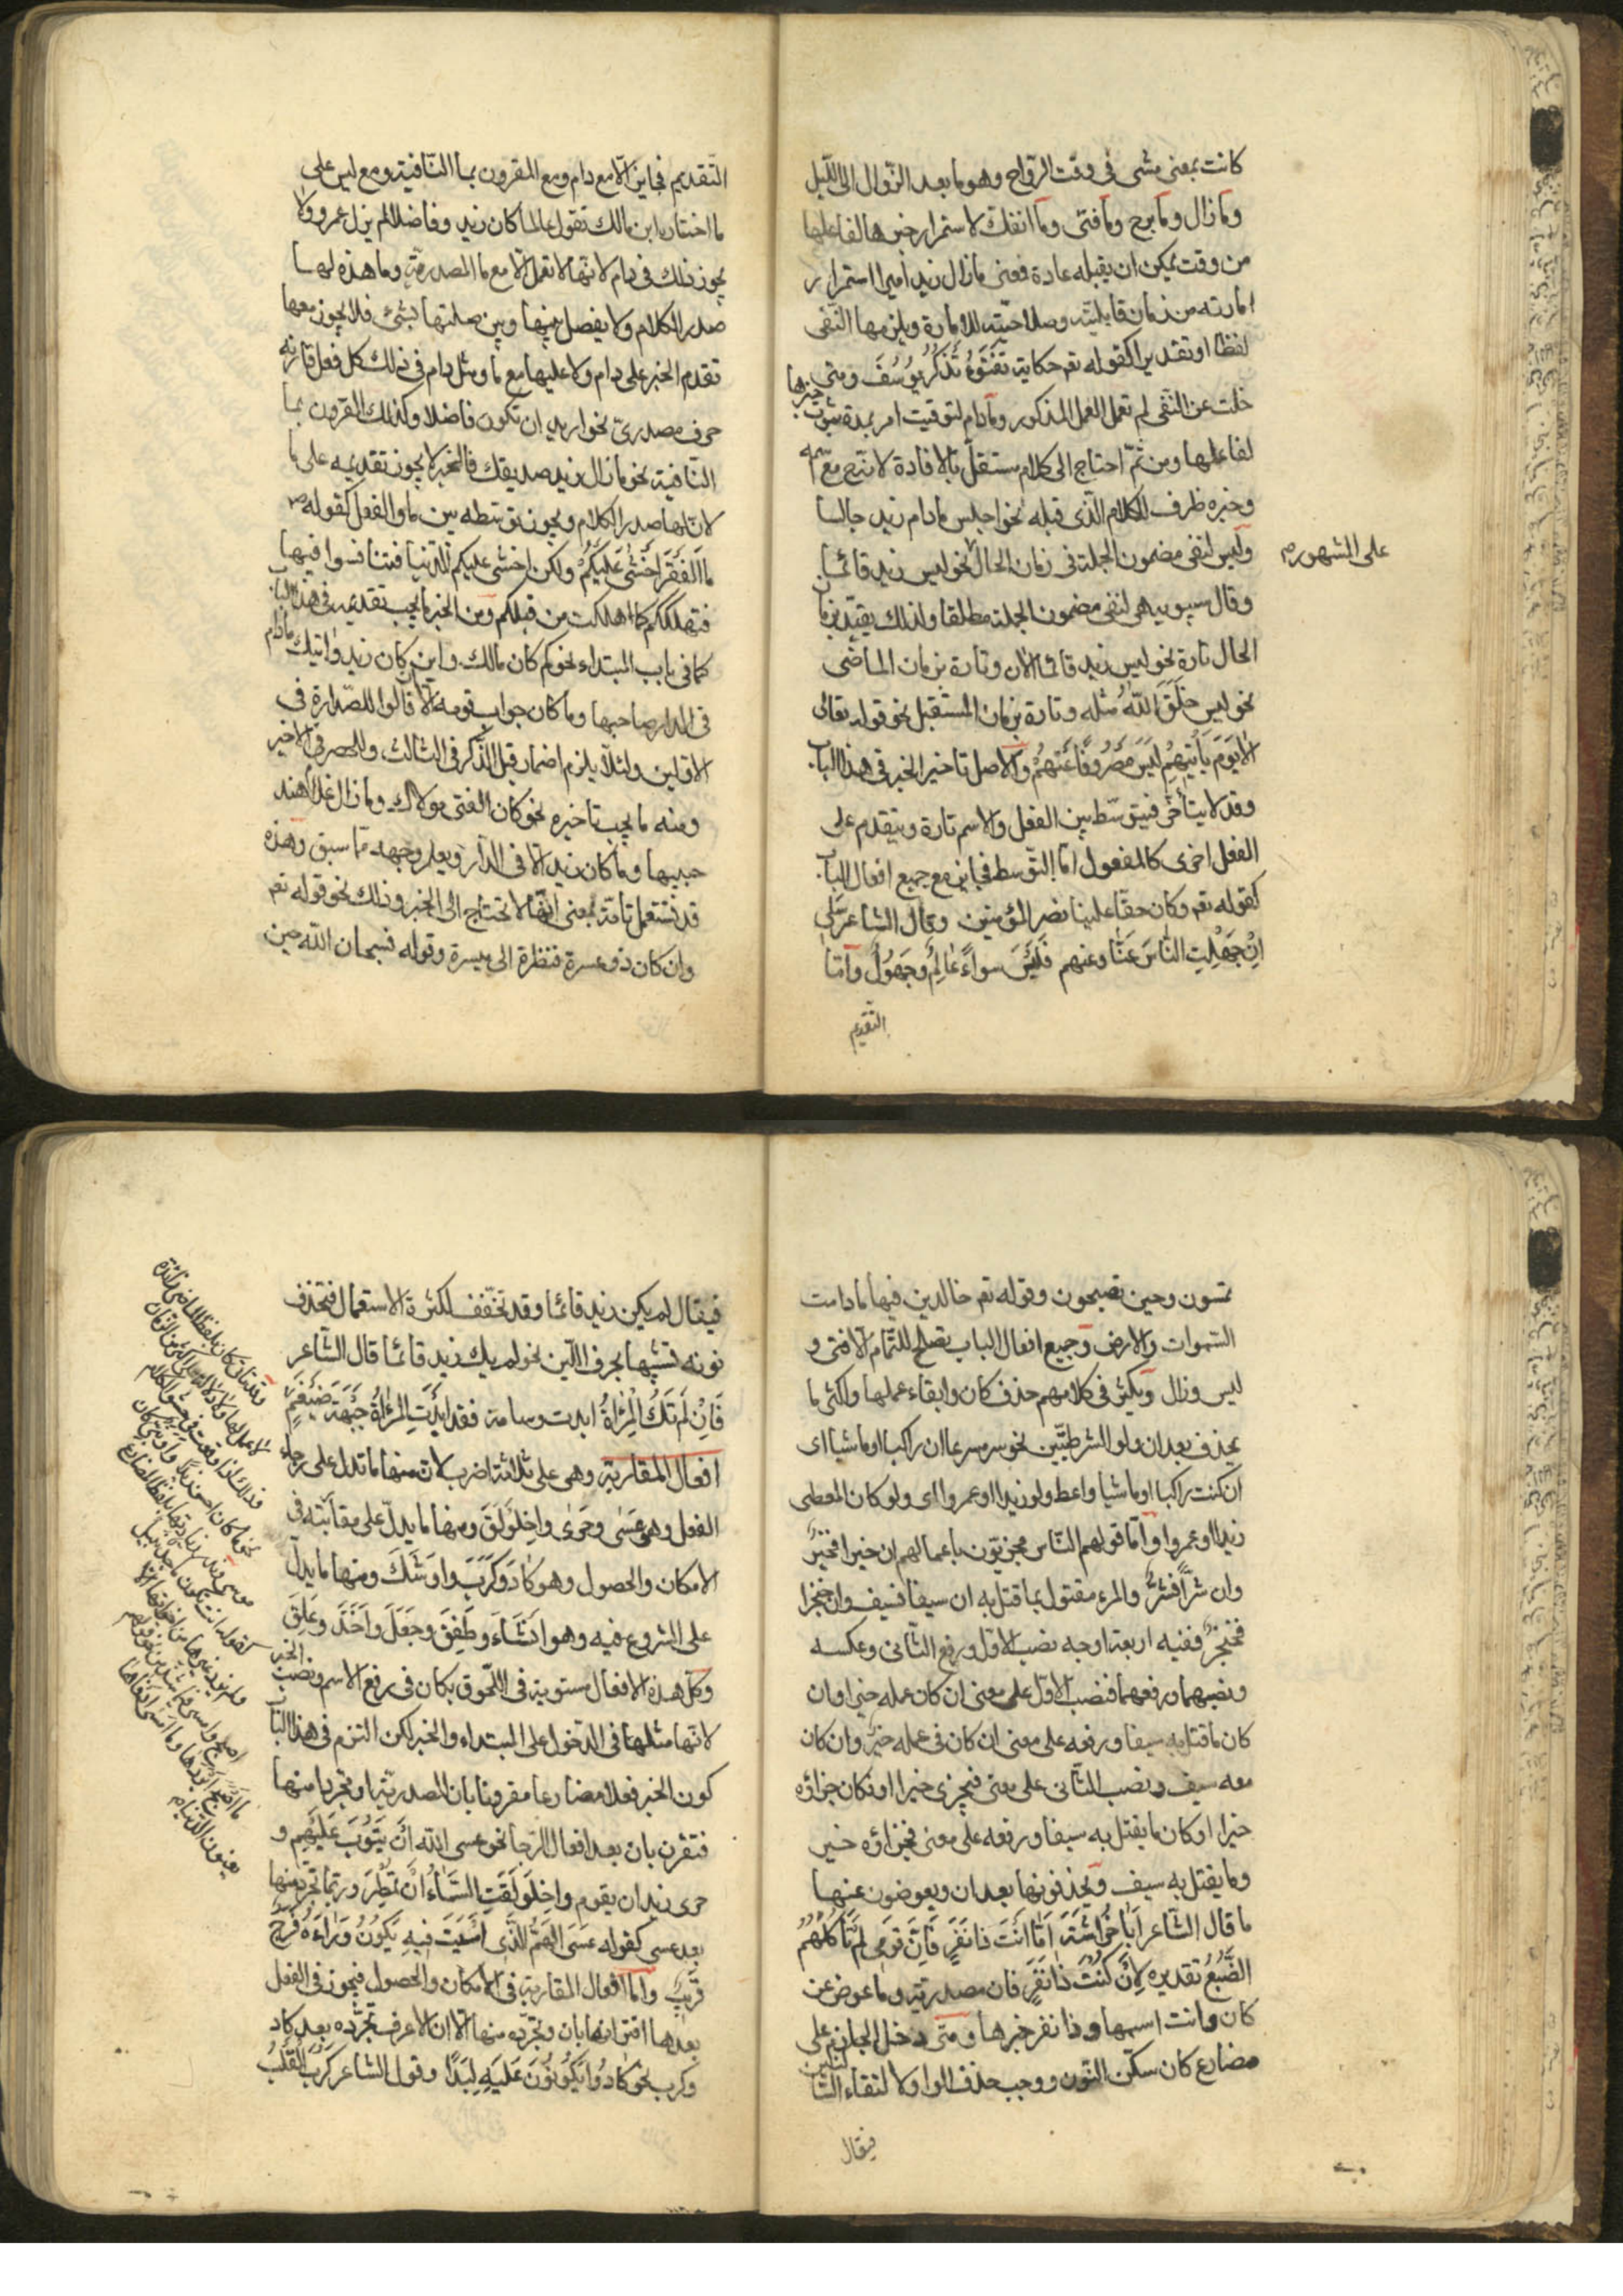 كانت بمعنى مشى فى وقت الرّواح وهو ما بعد الزّوال الى اللّيل
وما زال وما برح وما فتى وما انفك لاستمرار خبرها لفاعلها
من وقت يمكن ان يقبله عادة فمعنى ما زال زيد اميرا استمرار
امارته من زمان قابليّته وصلاحيّته للامارة ويلزمها النّفى
لفظا او تقديرا كقوله تعم حكاية تَفْتَؤُ تَذْكُرُ يُوسُفَ ومتى
خلت عن النّفى لم تعمل العمل المذكور وما دام لتوقيت امر بمدة ثبوت خبرها
لفاعلها ومن ثمّ احتاج الى كلام مستقلّ بالافادة لانّه مع اسمه
وخبره ظرف للكلام الّذى قبله نحو اجلس ما دام زيد جالسا
وليس لنفى مضمون الجملة فى زمان الحال نحو ليس زيد قائما
على المشهور
وقال سيبويه هى لنفى مضمون الجملة مطلقا ولذلك يقيّد بزمان
الحال تارة نحو ليس زيد قائما الآن وتارة بزمان الماضى
نحو ليس خَلَقَ اللّهُ مثله وتارة بزمان المستقبل نحو قوله تعالى
الا يَوْمَ يَأْتِيهِمْ لَيْسَ مَصْرُوفًا عَنْهُمْ والاصل تاخير الخبر فى هذا الباب
وقد لا يتأخّر فيتوسّط بين الفعل والاسم تارة ويتقدم على
الفعل اخرى كالمفعول امّا التّوسط فجايز مع جميع افعال الباب
كقوله تعم وكان حقّا علينا نصر المؤمنين وقال الشاعر سَلِى
اِنْ جَهِلْتِ النّاسَ عَنّا وعنهم فَلَيْسَ سواءً عالِمٌ وجَهُولٌ وامّا
التّقديم
التّقديم فجايز الّا مع دام ومع المقرون بما النّافية ومع ليس على
ما اختاره ابن مالك تقول عالما كان زيد وفاضلا لم يزل عمرو ولا
يجوز ذلك فى دام لانّها لا تعمل الّا مع ما المصدريّة وما هذه لها
صدر الكلام ولا يفصل بينها وبين صلتها بشئ فلا يجوز معها
تقدم الخبر على دام ولا عليها مع ما ومثل دام فى ذلك كل فعل قارنه
حرف مصدرىّ نحو اريد ان تكون فاضلا وكذلك المقرون بما
النّافية نحو ما زال زيد صديقك فالخبر لا يجوز تقديمه على ما
لانّ لها صدر الكلام ويجوز توسّطه بين ما والفعل كقوله ص
ما الْفَقْرَ اَخْشٰى عَلَيْكُمْ ولكن اخشى عليكم الدّنيا فتنافسوا فيها
فتهلككم كما اهلكت من قبلكم ومن الخبر ما يجب تقديمه فى هذا الباب
كما فى باب المبتداء نحو كم كان مالك واين كان زيد واتيك ما دام
فى الدار صاحبها وما كان جواب قومه الّا ان قالوا للصّدارة فى
الاوّلين ولئلّا يلزم اضمار قبل الذّكر فى الثالث وللحصر فى الاخير
ومنه ما يجب تاخيره نحو كان الفتى مولاك وما زال غلام هند
حبيبها وما كان زيد الّا فى الدّار ويعلم وجهه ممّا سبق وهذه
قد تستعمل تامّة بمعنى انّها لا تحتاج الى الخبر وذلك نحو قوله تعم
وان كان ذو عسرة فنظرة الى ميسرة وقوله فسبحان اللّه حين
تمسون وحين تصبحون وقوله تعم خالدين فيها ما دامت
السّموات والارض وجميع افعال الباب تصلح للتّمام الّا فتى و
ليس وزال ويكثر فى كلامهم حذف كان وابقاء عملها واكثر ما
يحذف بعد ان ولو الشرطيّتين نحو سر مسرعا ان راكبا او ماشيا اى
ان كنت راكبا او ماشيا واعط ولو زيدا او عمروا اى ولو كان المعطى
زيدا او عمروا وامّا قولهم النّاس مجزيّون باعمالهم ان خيرا فخيرٌ
وان شرّا فشرٌّ والمرء مقتول بما قتل به ان سيفا فسيف وان خنجرا
فخنجرٌ ففيه اربعة اوجه نصب الاوّل ورفع الثّانى وعكسه
ونصبهما ورفعهما فنصب الاوّل على معنى ان كان عمله خيرا وان
كان ما قتل به سيفا ورفعه على معنى ان كان فى عمله خيرٌ وان كان
معه سيف ونصب الثّانى على معنى فيجزى خيرا او فكان جزاؤه
خيرا او كان ما يقتل به سيفا ورفعه على معنى فجزاؤه خير
وما يقتل به سيف ويحذفونها بعد ان ويعوضون عنها
ما قال الشّاعر اَبا خُراشَةَ اَمّا اَنْتَ ذا نَفَرٍ فَاِنَّ قَومِى لَمْ تَأْكُلْهُمُ
الضَّبُعُ تقديره لِاَنْ كُنْتَ ذا نَفَرٍ فان مصدريّة وما عوض عن
كان وانت اسمها وذا نفر خبرها ومتى دخل الجازم على
مضارع كان سكّن النّون ووجب حذف الواو لالتقاء السّاكنين
فيقال
فيقال لم يكن زيد قائما وقد تخفّف لكثرة الاستعمال فتحذف
نونه تشبيها بحرف اللّين نحو لم يك زيد قائما قال الشّاعر
فَاِنْ لَمْ تَكُ الْمِرْاٰةُ ابدت وسامة فقد اَبْدَتِ المِرْاٰةُ جَبْهَةَ ضَيْغَمٍ
افعال المقاربة وهى على ثلاثة اضرب لانّ منها ما تدل على رجاء
الفعل وهو عَسٰى وحَرٰى واخْلَوْلَقَ ومنها ما يدلّ على مقاربته فى
الامكان والحصول وهو كادَ وكَرَبَ واَوْشَكَ ومنها ما يدل
على الشروع فيه وهو اَنْشَاَ وطَفِقَ وجَعَلَ واَخَذَ وعَلِقَ
وكلّ هذه الافعال مستوية فى اللّحوق بكان فى رفع الاسم ونصب الخبر
لانّها مثلها فى الدّخول على المبتداء والخبر لكن التزم فى هذا الباب
كون الخبر فعلا مضارعا مقرونا بان المصدريّة او مجردا منها
فتقرن بان بعد افعال الرّجا نحو عسى اللّه اَنْ يَتُوبَ عَلَيْهِم و
حرى زيد ان يقوم واخْلَوْلَقَتِ السّماءُ اَنْ تَمْطُرَ وربّما تجرد منها
بعد عسى كقوله عَسَى الْهَمُّ الَّذى اَمْسَيْتَ فيهِ يَكُونُ وَراءَهُ فَرَجٌ
قَريبٌ وامّا افعال المقاربة فى الامكان والحصول فيجوز فى الفعل
بعدها اقترانها بان وتجرّده منها الّا ان الاعرف تجرّده بعد كاد
وكرب نحو كادُوا يَكُونُونَ عَلَيْهِ لِبَدًا وقول الشاعر كَرَبَ الْقَلْبُ